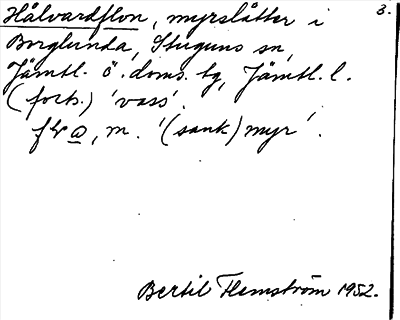 3.
Hålvardflon, myrslåtter i
Borglunda, Stuguns sn,
Jämtl. ö. doms. tg, Jämtl. l.
(forts.) 'vass'.
m. '(sank)myr'.
Bertil Flemström 1952.